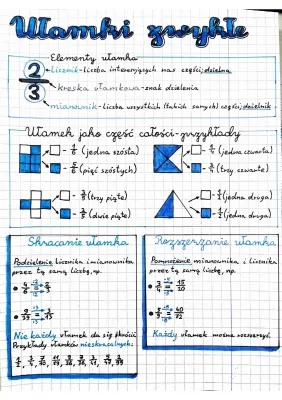 Ułamki zwykłe
Elementy ułamka
2 licznik-liczba interesujących nas części;dzielna
kreska ułamkowa-znak dzielenia
3 mianownik-liczba wszystkich (takich samych) części;dzielnik
Ułamek jako część całości-przykłady
1/6 (jedna szósta)
1/4 (jedna czwarta)
5/6 (pięć szóstych)
3/4 (trzy czwarte)
3/5 (trzy piąte)
1/2 (jedna druga)
2/5 (dwie piąte)
1/2 (jedna druga)
Skracanie ułamka
Podzielenie licznika i mianownika
przez tą samą liczbę, np.
Nie każdy ułamek da się skrócić
Przykłady ułamków nieskracalnych:
Rozszerzanie ułamka
Pomnożenie mianownika i licznika
przez tą samą liczbę, np.
3/4 = 15/20
Każdy ułamek można rozszerzyć.